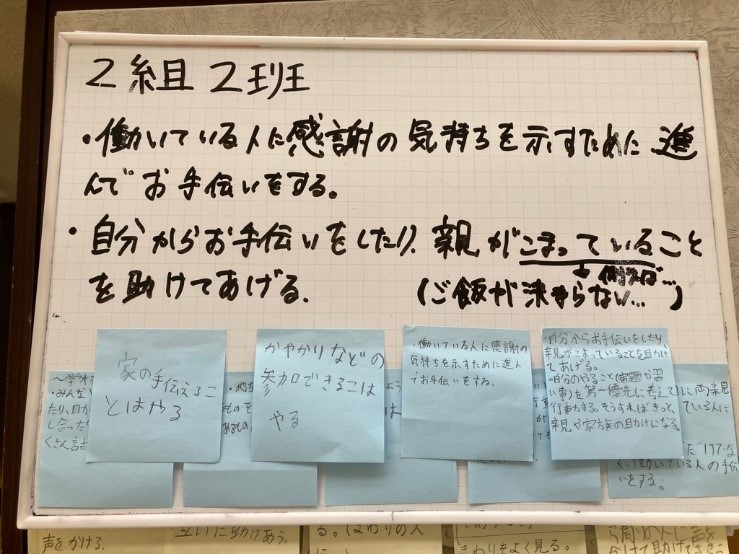 2組 2班
・働いている人に感謝の気持ちを示すために 進
んでお手伝いをする。
・自分からお手伝いをしたり、親がこまっていること
を助けてあげる。
例えば…
(ご飯が決まらない…)
家の手伝えるこ
とはやる
参加できることは
やる
・働いている人に感謝の
気持ちを示すために進ん
でお手伝いをする。
・自分からお手伝いをしたり、
親がこまっていることを助け
てあげる。
・自分のやること
を第一優先に考えて
行動する。そうすればきっと、
親や家族の助けになる。
・みんな
くさん話
に両親
している人に
いている人の手伝
いをする。
声をかける。
互いに助けあう。
る。(まわりの人
まわりをよく見る。